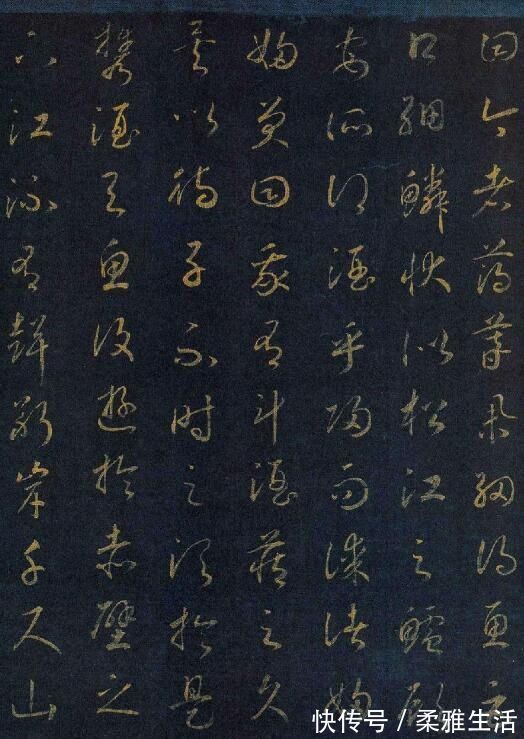 曰今者薄暮舉網得魚巨
口細鱗狀似松江之鱸顧
安所得酒乎歸而謀諸婦
婦笑曰我有斗酒藏之久
矣以待子不時之須於是
攜酒與魚復遊於赤壁之
下江流有聲斷岸千尺山
快传号 / 柔雅生活